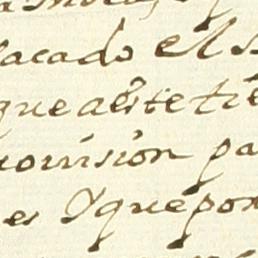 acado el
que a este tie
ovision pa
es Yque pon